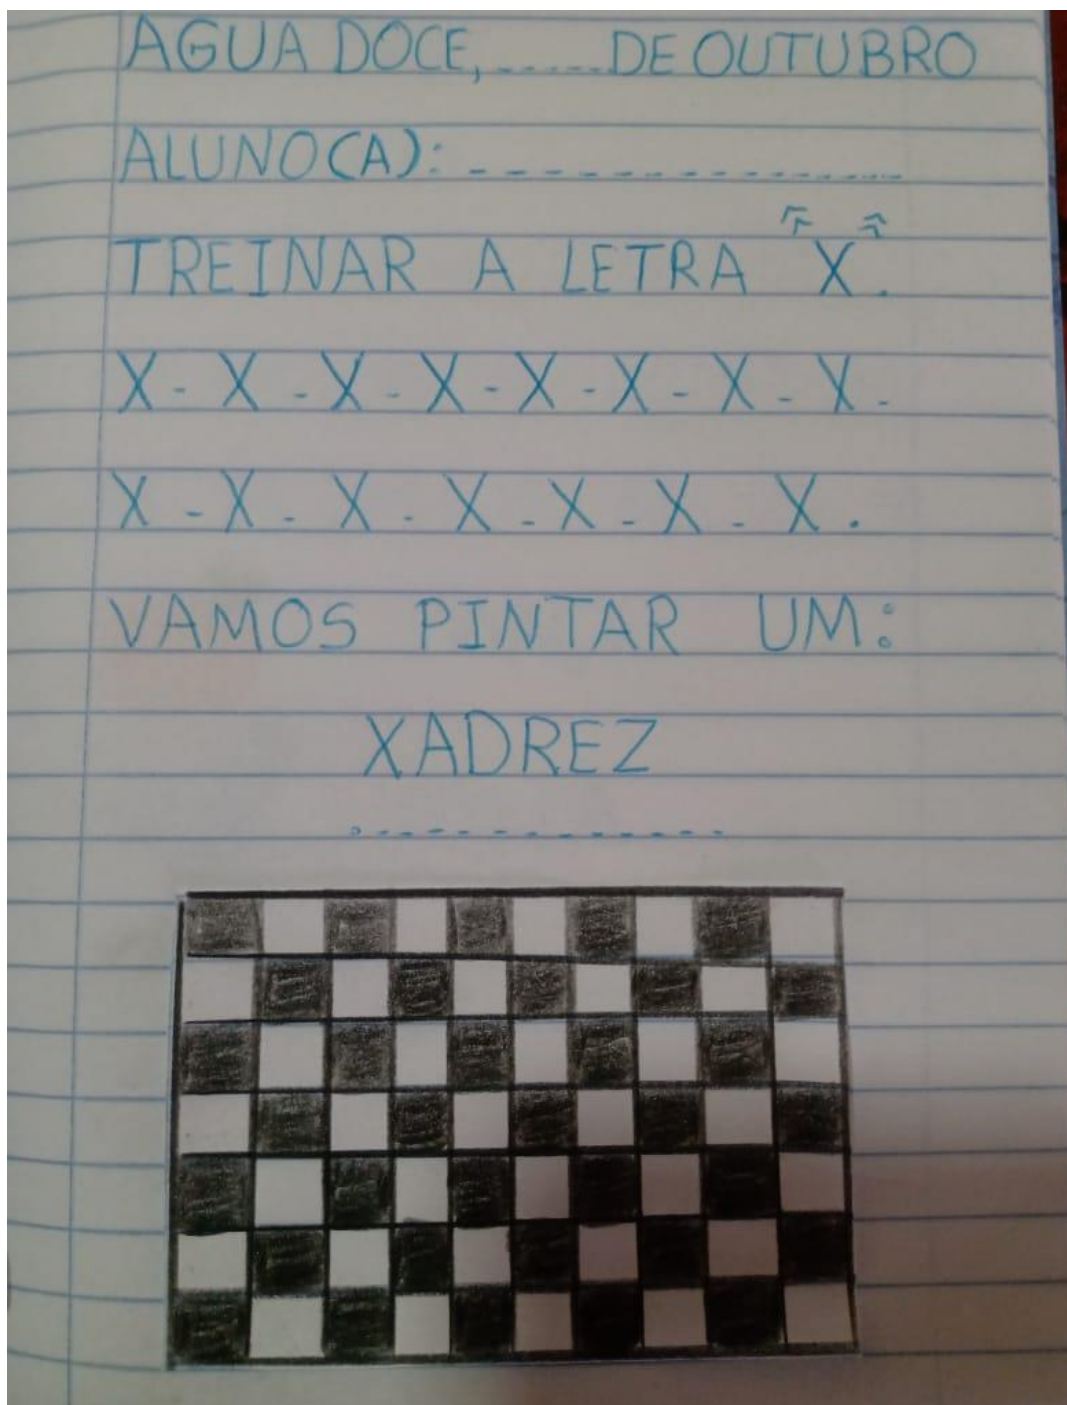 AGUA DOCE, ..... DE OUTUBRO
ALUNO(A): - - - - - - - - - - - - - - -
TREINAR A LETRA "X".
X - X - X - X - X - X - X - X -
X - X - X - X - X - X - X .
VAMOS PINTAR UM:
XADREZ